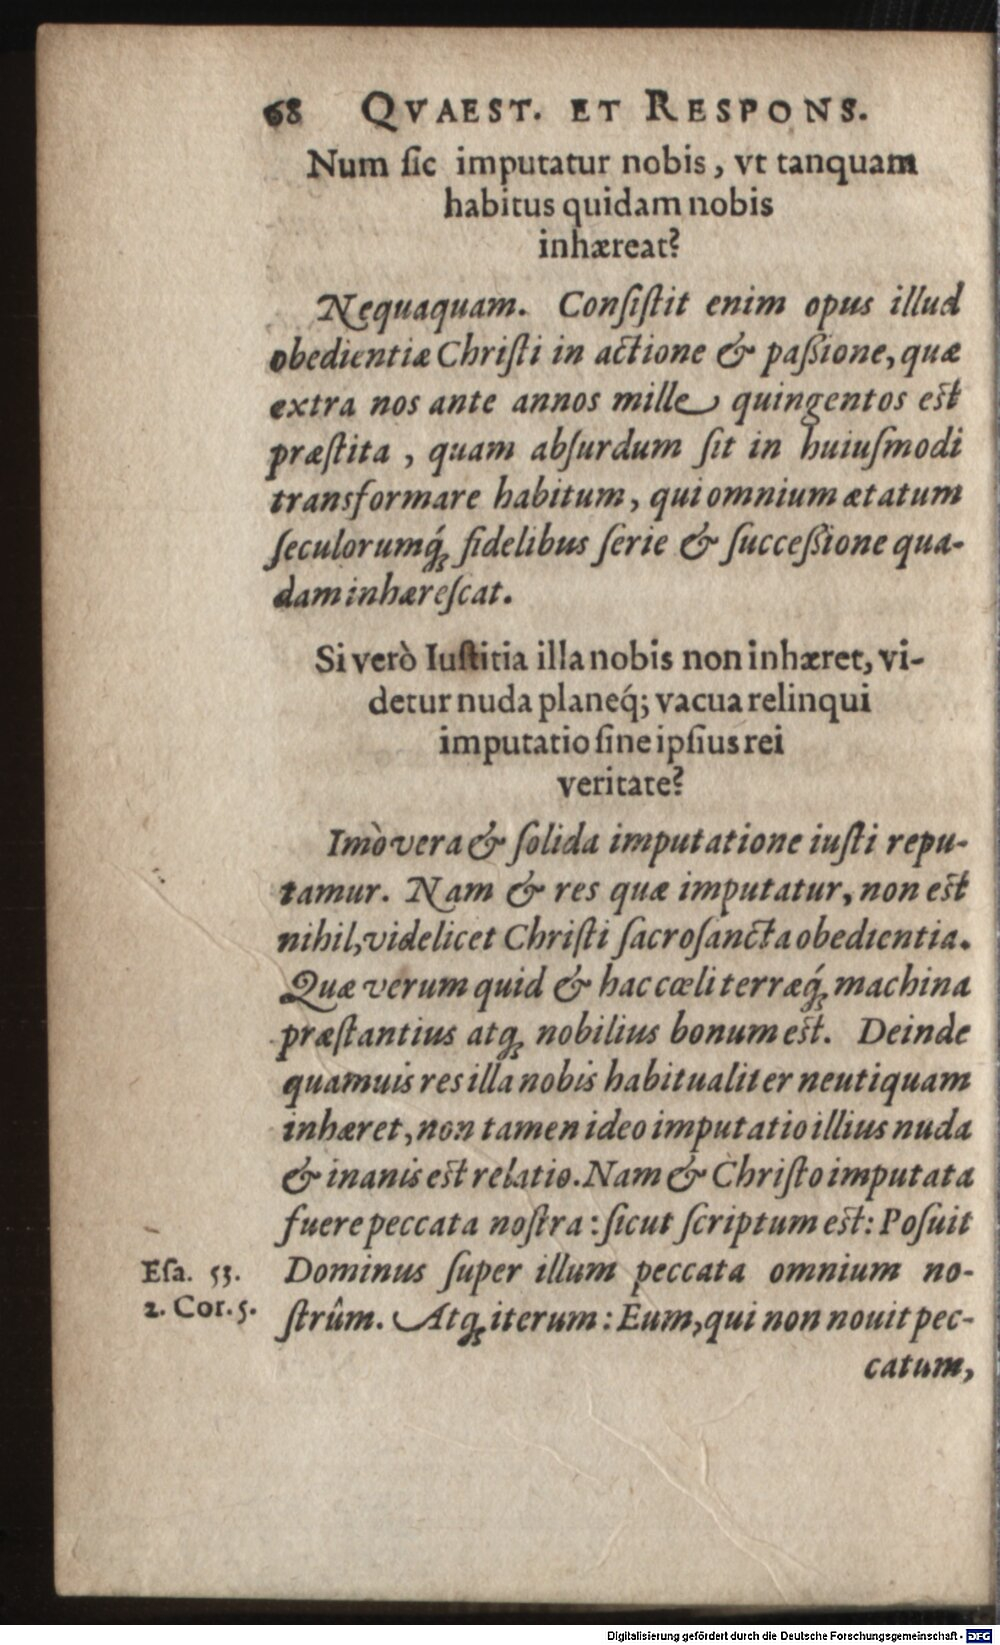 68 QVAEST. ET RESPONS.
Num ſic imputatur nobis, vt tanquam
habitus quidam nobis
inhæreat?
Nequaquam. Conſiſtit enim opus illud
obedientiæ Chriſti in actione & paßione, quæ
extra nos ante annos mille quingentos eſt
præſtita, quam abſurdum ſit in huiuſmodi
transformare habitum, qui omnium ætatum
ſeculorumq́ꝫ fidelibus ſerie & ſucceßione qua-
dam inhæreſcat.
Si verò Iuſtitia illa nobis non inhæret, vi-
detur nuda planeq́; vacua relinqui
imputatio ſine ipſius rei
veritate?
Imò vera & ſolida imputatione iuſti repu-
tamur. Nam & res quæ imputatur, non eſt
nihil, videlicet Chriſti ſacroſancta obedientia.
Quæ verum quid & hac cœli terræq́ꝫ machina
præſtantius atqꝫ nobilius bonum eſt. Deinde
quamuis res illa nobis habitualiter neutiquam
inhæret, non tamen ideo imputatio illius nuda
& inanis eſt relatio. Nam & Chriſto imputata
fuere peccata noſtra: ſicut ſcriptum eſt: Poſuit
Eſa. 53. Dominus ſuper illum peccata omnium no-
2. Cor. 5. ſtrûm. Atqꝫ iterum: Eum, qui non nouit pec-
catum,
Digitalisierung gefördert durch die Deutsche Forschungsgemeinschaft - DFG